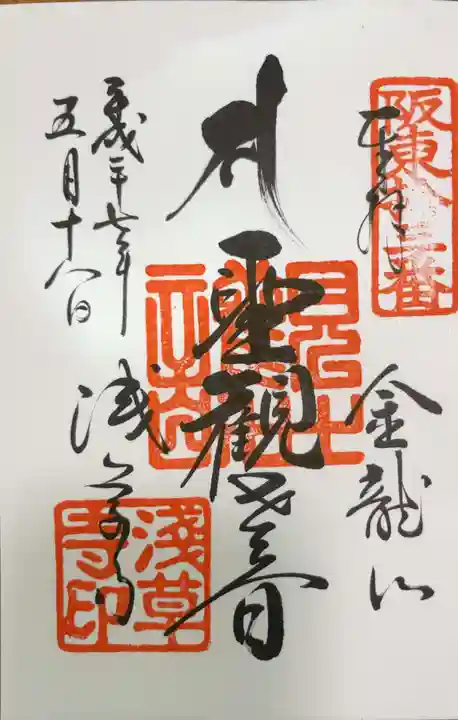 奉拝
金龍山
聖観世音
浅草寺
平成二十七年
五月十八日
阪東拾三番
浅草寺印